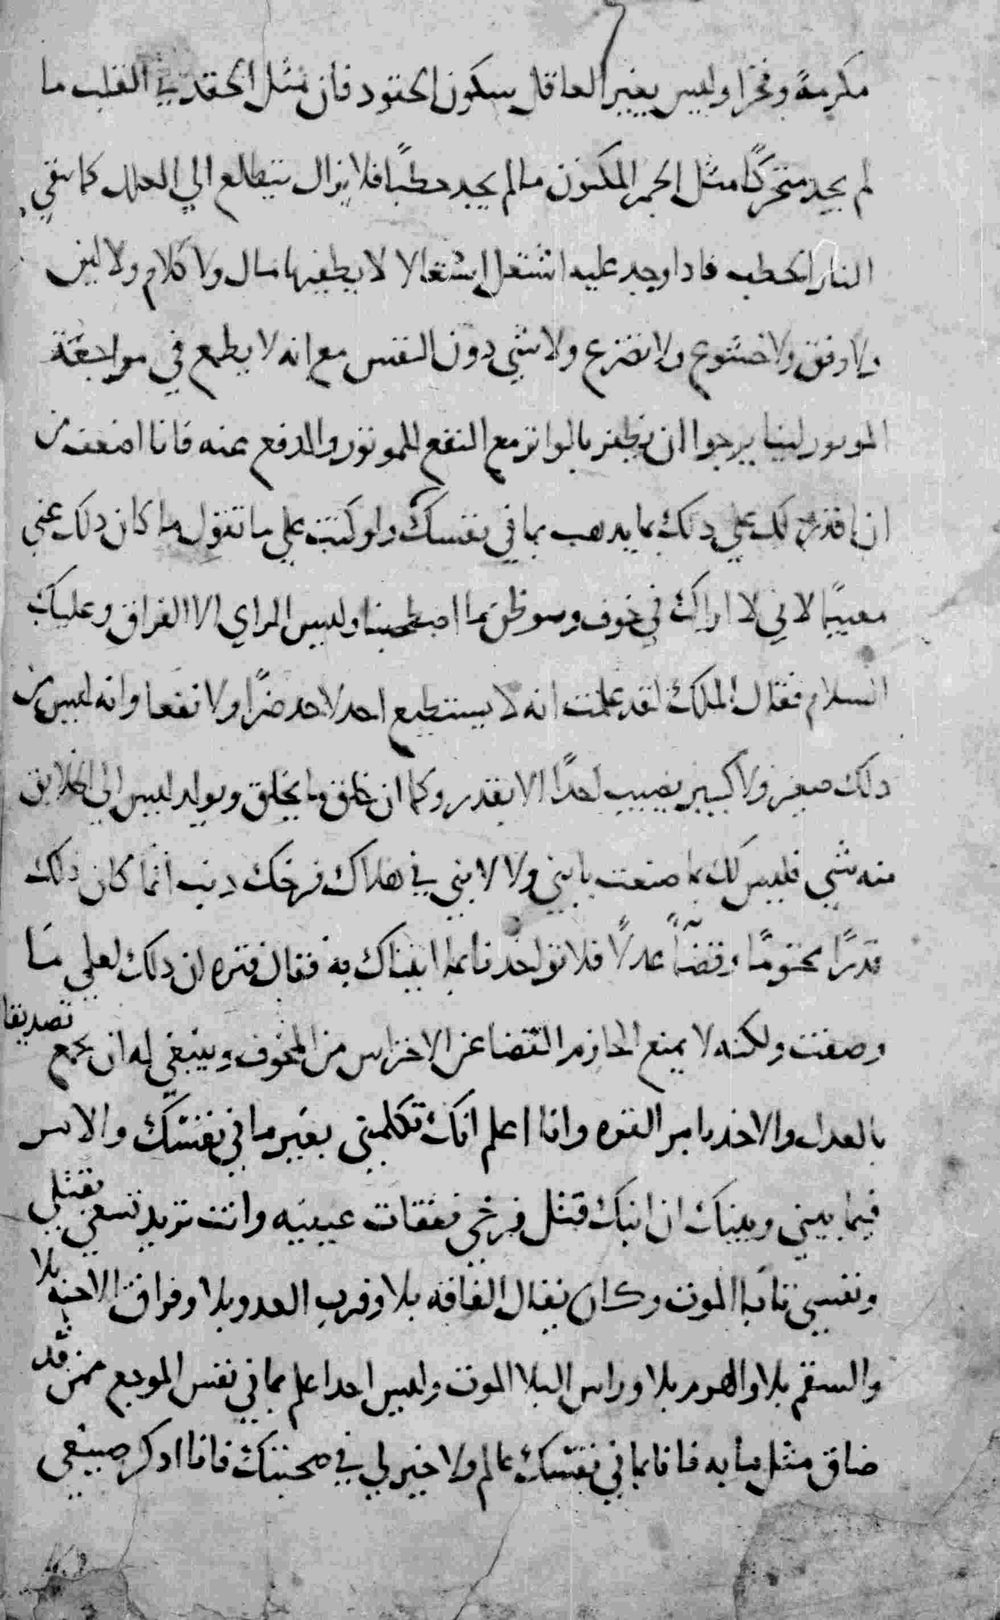 مكرمةً وفخرا وليس يغير العاقل سكون الحقود فان مثل الحقد في القلب ما
لم يجد متحركًا مثل الجمر المكنون ما لم يجد حطبًا فلا يزال يتطالع الي العلل كما تبقي
النار الحطب فادا وجد عليه اشتعل اشتعالا لا يطفيها مال ولا كلام ولا لين
ولا رفق ولا خشوع ولا تضرع ولا شي دون النفس مع انه لا يطمع في مراجعة
الموتور لينا يرجوا ان يظفر بالواتر مع النفع للموتور والدفع عنه فانا اضعف من
ان اقدر لك علي دلك بما يدهب بما في نفسك ولو كنت علي ما تقول ما كان دلك عني
مغنيًا لاني لا اراك في خوف وسو ظن ما اصطحبنا وليس الراي الا الفراق وعليك
السلام فقال الملك لقد علمت انه لا يستطيع احد لاحد ضرًا ولا نفعا وانه ليس من
دلك صغير ولا كبير يصيب احدًا الا بقدر وكما ان خلق ما يخلق ويولد ليس الي الخلايق
منه شي فليس لك بما صنعت بابني ولا لابني في هلاك فرخك دنب انما كان دلك
قدرًا محتومًا وقضاً عدلًا فلا تواخدنا بما اتيناك به فقال فتره ان دلك لعلي ما
وصفت ولكنه لا يمنع الحازم القضا عن الاحتراس من المخوف وينبغي له ان يجمع تصديقا
بالقدر والاخد بامر القوه وانا اعلم انك تكلمني بغير ما في نفسك والامر
فيما بيني وبينك ان ابنك قتل فرخي ففقات عينيه وانت تريد تسعي بقتلي
ونفسي تابه الموت وكان يقال الفاقه بلا وقرب العدو بلا وفراق الاحبه بلا
والسقم بلا والهرم بلا وراس البلا الموت وليس احد اعلم بما في نفس الموجع ممن قد
ضاق مثل ما به فانا بما في نفسك عالم ولا خير لي في صحبتك فانا ادكر صنيعي